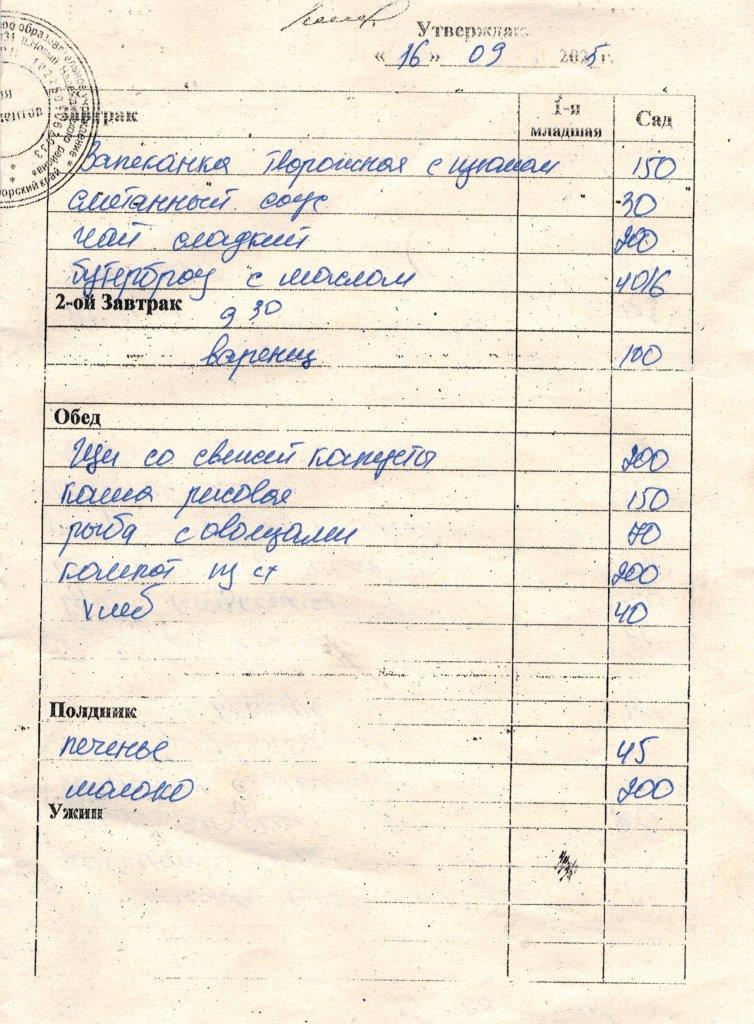 Утверждаю
« 16 » 09 2025г.
Завтрак 1-я младшая Сад
Запеканка творожная с изюмом 150
сметанный соус 30
чай сладкий 200
бутерброд с маслом 40/6
2-ой Завтрак 9 30
варенец 100
Обед
Щи со свежей капусты 200
каша рисовая 150
рыба с овощами 70
компот из с/х 200
хлеб 40
Полдник
печенье 45
молоко 200
Ужин